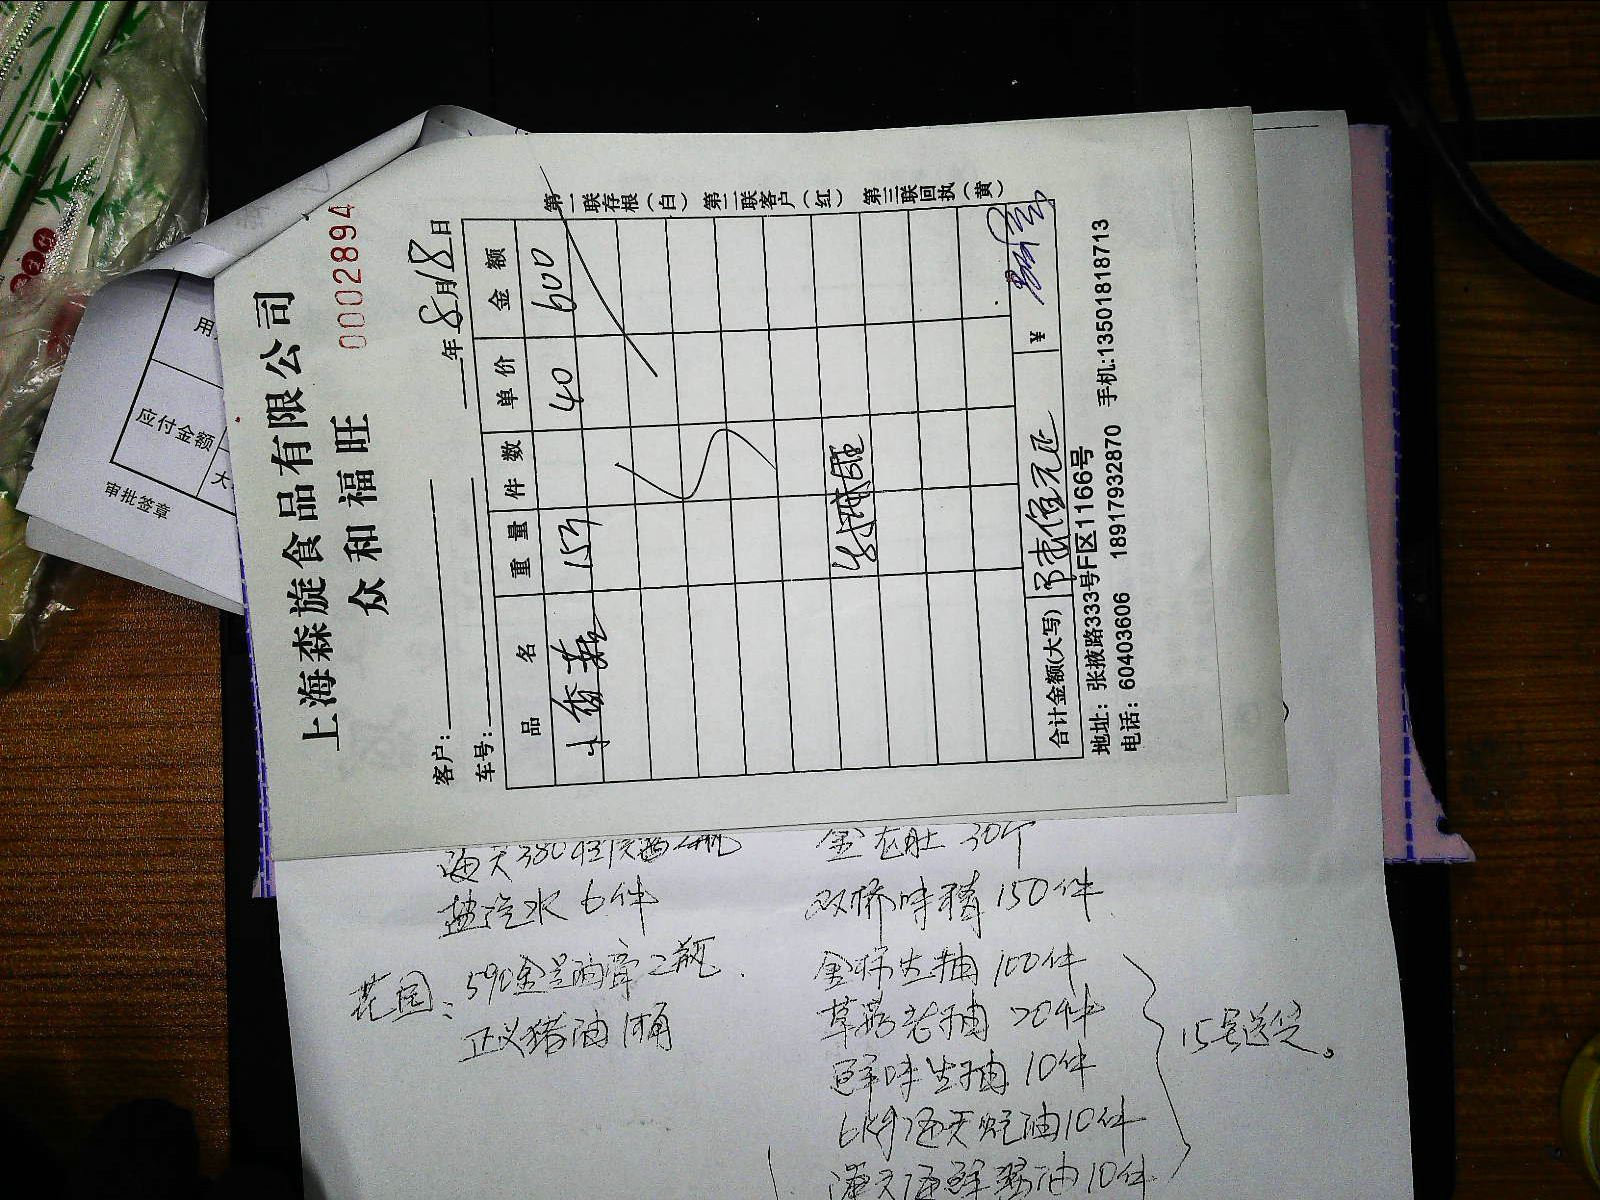 上海森旋食品有限公司
众和福旺
0002894
客户：
年8月18日
车号：
品名 重量 件数 单价 金额
小香 15斤 40 600
合计金额(大写) 佰元正 ¥
地址：张掖路333号F区1166号
电话：60403606 18917932870 手机:13501818713
第一联存根（白） 第二联客户（红） 第三联回执（黄）
应付金额
审批签章
用
大
盐汽水 6件
花园：590金兰油膏二瓶
正义猪油 1桶
金龙肚 30个
双桥味精 150件
金标生抽 100件
草菇老抽 20件
鲜味生抽 10件
6kg海天蚝油10件
海天海鲜酱油10件
15号送货。